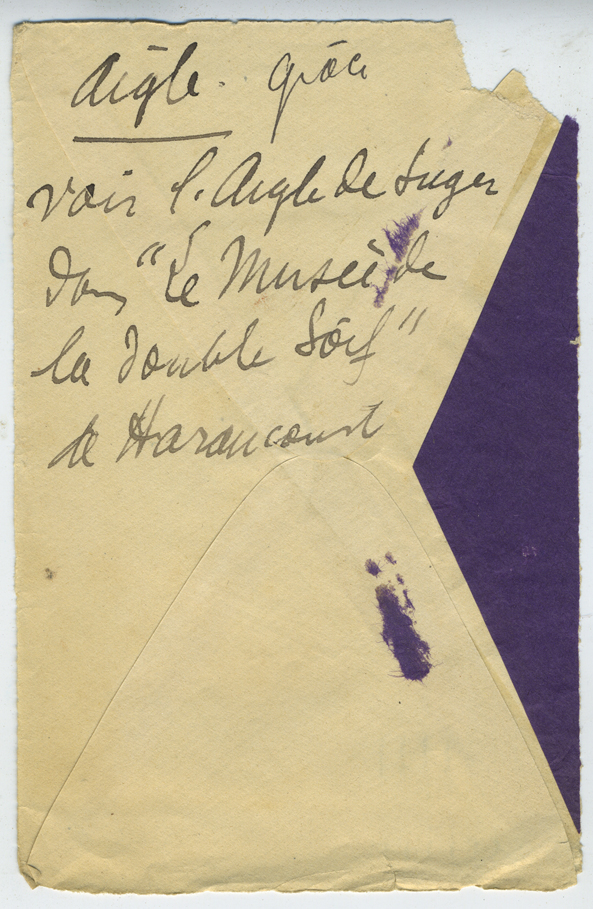 Aigle. grâce
voir l'Aigle de Suger
dans "Le Musée de
la double Soif"
de Haraucourt